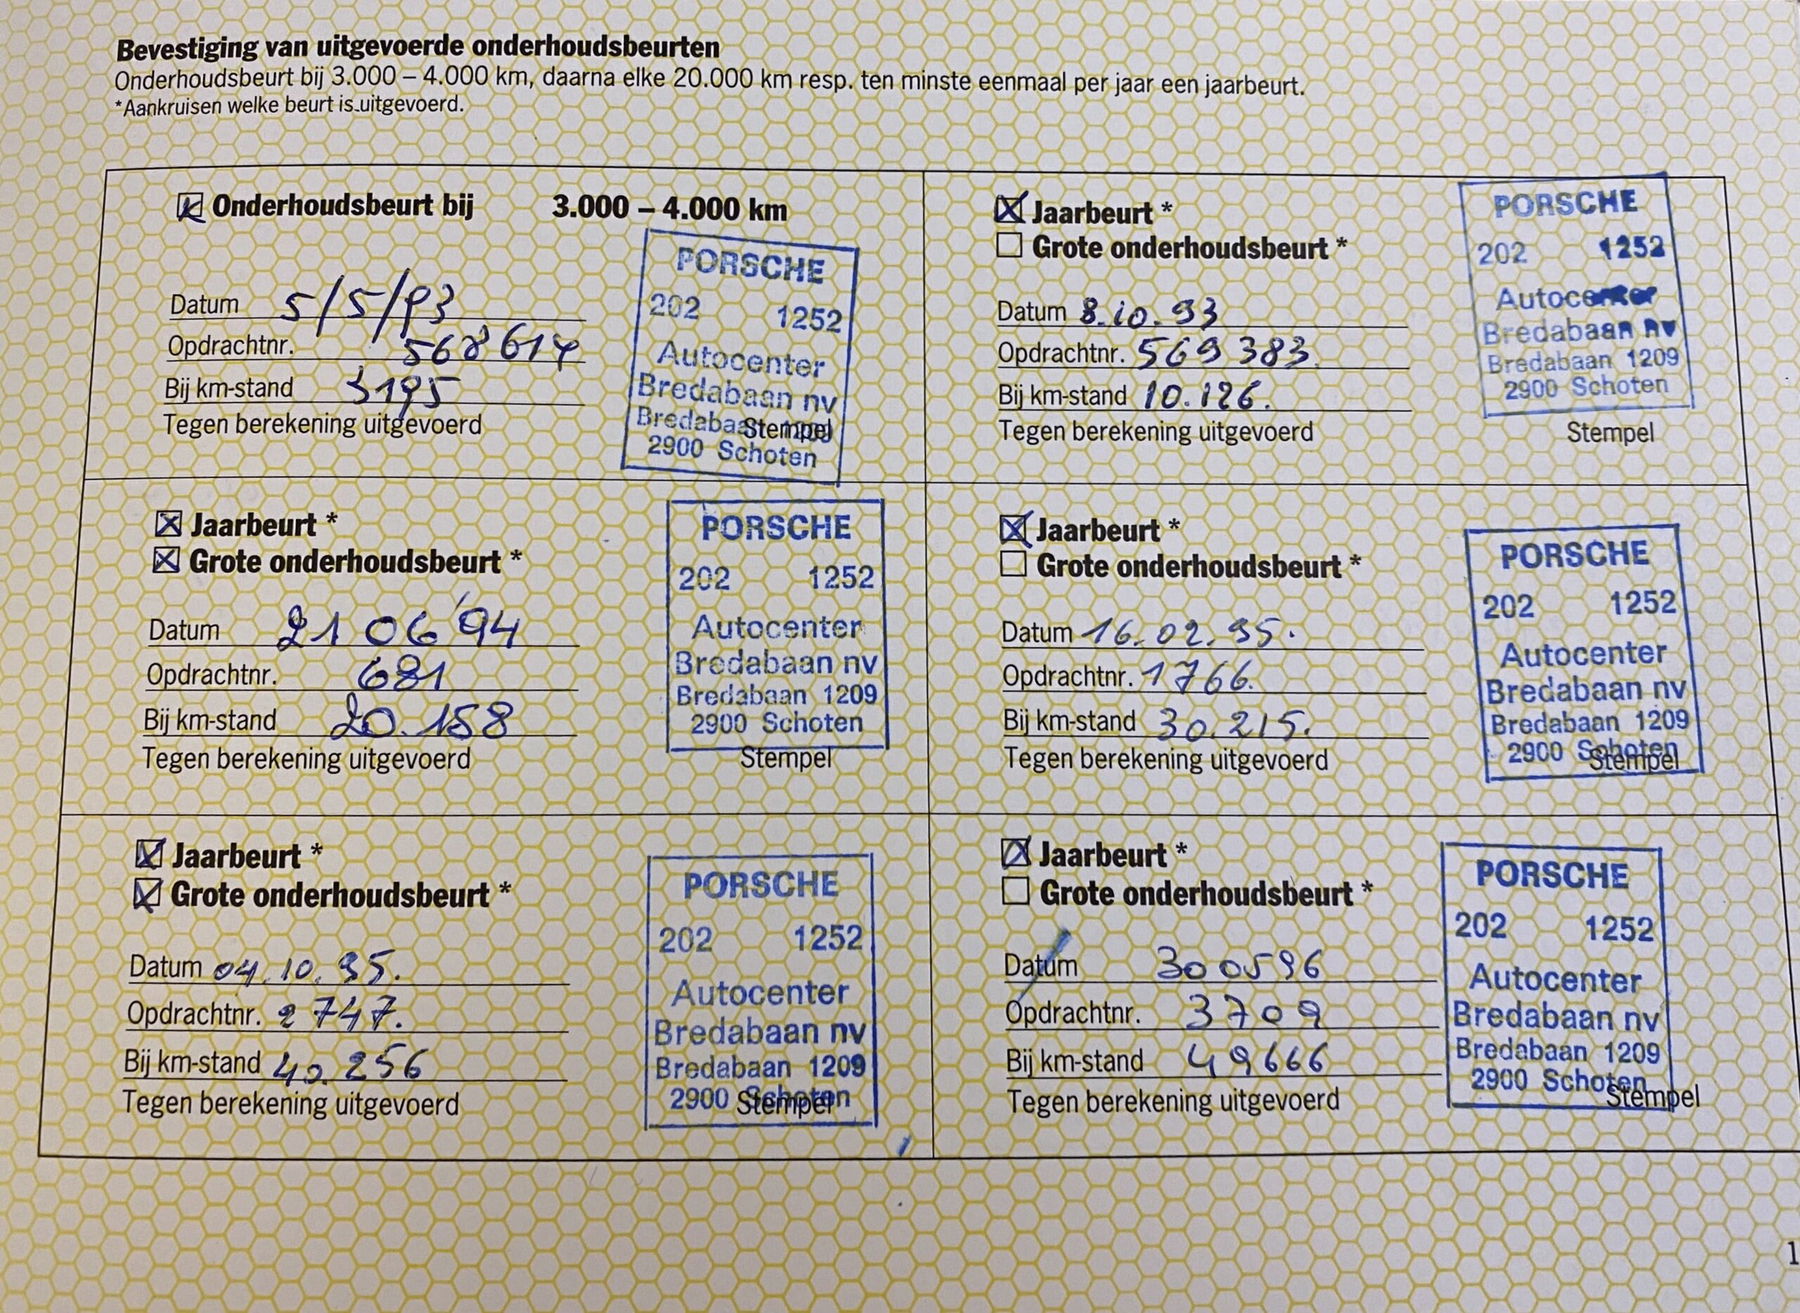 Bevestiging van uitgevoerde onderhoudsbeurten
Onderhoudsbeurt bij 3.000 – 4.000 km, daarna elke 20.000 km resp. ten minste eenmaal per jaar een jaarbeurt.
*Aankruisen welke beurt is uitgevoerd.
Onderhoudsbeurt bij 3.000 – 4.000 km
Datum 5/5/93
Opdrachtnr. 568614
Bij km-stand 3195
Tegen berekening uitgevoerd
Stempel
PORSCHE
202 1252
Autocenter
Bredabaan nv
Bredabaan 1209
2900 Schoten
Jaarbeurt *
Grote onderhoudsbeurt *
Datum 8.10.93
Opdrachtnr. 569 383.
Bij km-stand 10.126.
Tegen berekening uitgevoerd
Stempel
PORSCHE
202 1252
Autocenter
Bredabaan nv
Bredabaan 1209
2900 Schoten
Jaarbeurt *
Grote onderhoudsbeurt *
Datum 21 06 '94
Opdrachtnr. 681
Bij km-stand 20.158
Tegen berekening uitgevoerd
Stempel
PORSCHE
202 1252
Autocenter
Bredabaan nv
Bredabaan 1209
2900 Schoten
Jaarbeurt *
Grote onderhoudsbeurt *
Datum 16.02.95.
Opdrachtnr. 1766.
Bij km-stand 30.215.
Tegen berekening uitgevoerd
Stempel
PORSCHE
202 1252
Autocenter
Bredabaan nv
Bredabaan 1209
2900 Schoten
Jaarbeurt *
Grote onderhoudsbeurt *
Datum 04.10.95.
Opdrachtnr. 2747.
Bij km-stand 40.256
Tegen berekening uitgevoerd
Stempel
PORSCHE
202 1252
Autocenter
Bredabaan nv
Bredabaan 1209
2900 Schoten
Jaarbeurt *
Grote onderhoudsbeurt *
Datum 300596
Opdrachtnr. 3709
Bij km-stand 49666
Tegen berekening uitgevoerd
Stempel
PORSCHE
202 1252
Autocenter
Bredabaan nv
Bredabaan 1209
2900 Schoten
1